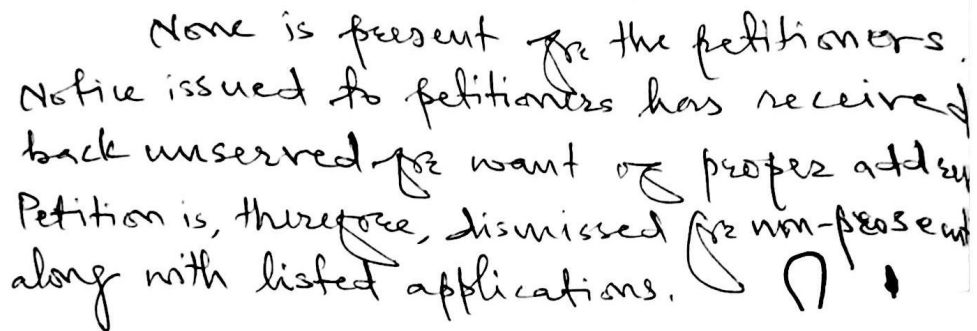 None is present for the petitioners.
Notice issued to petitioners has received
back unserved for want of proper addre
Petition is, therefore, dismissed for non-prosecut
along with listed applications.